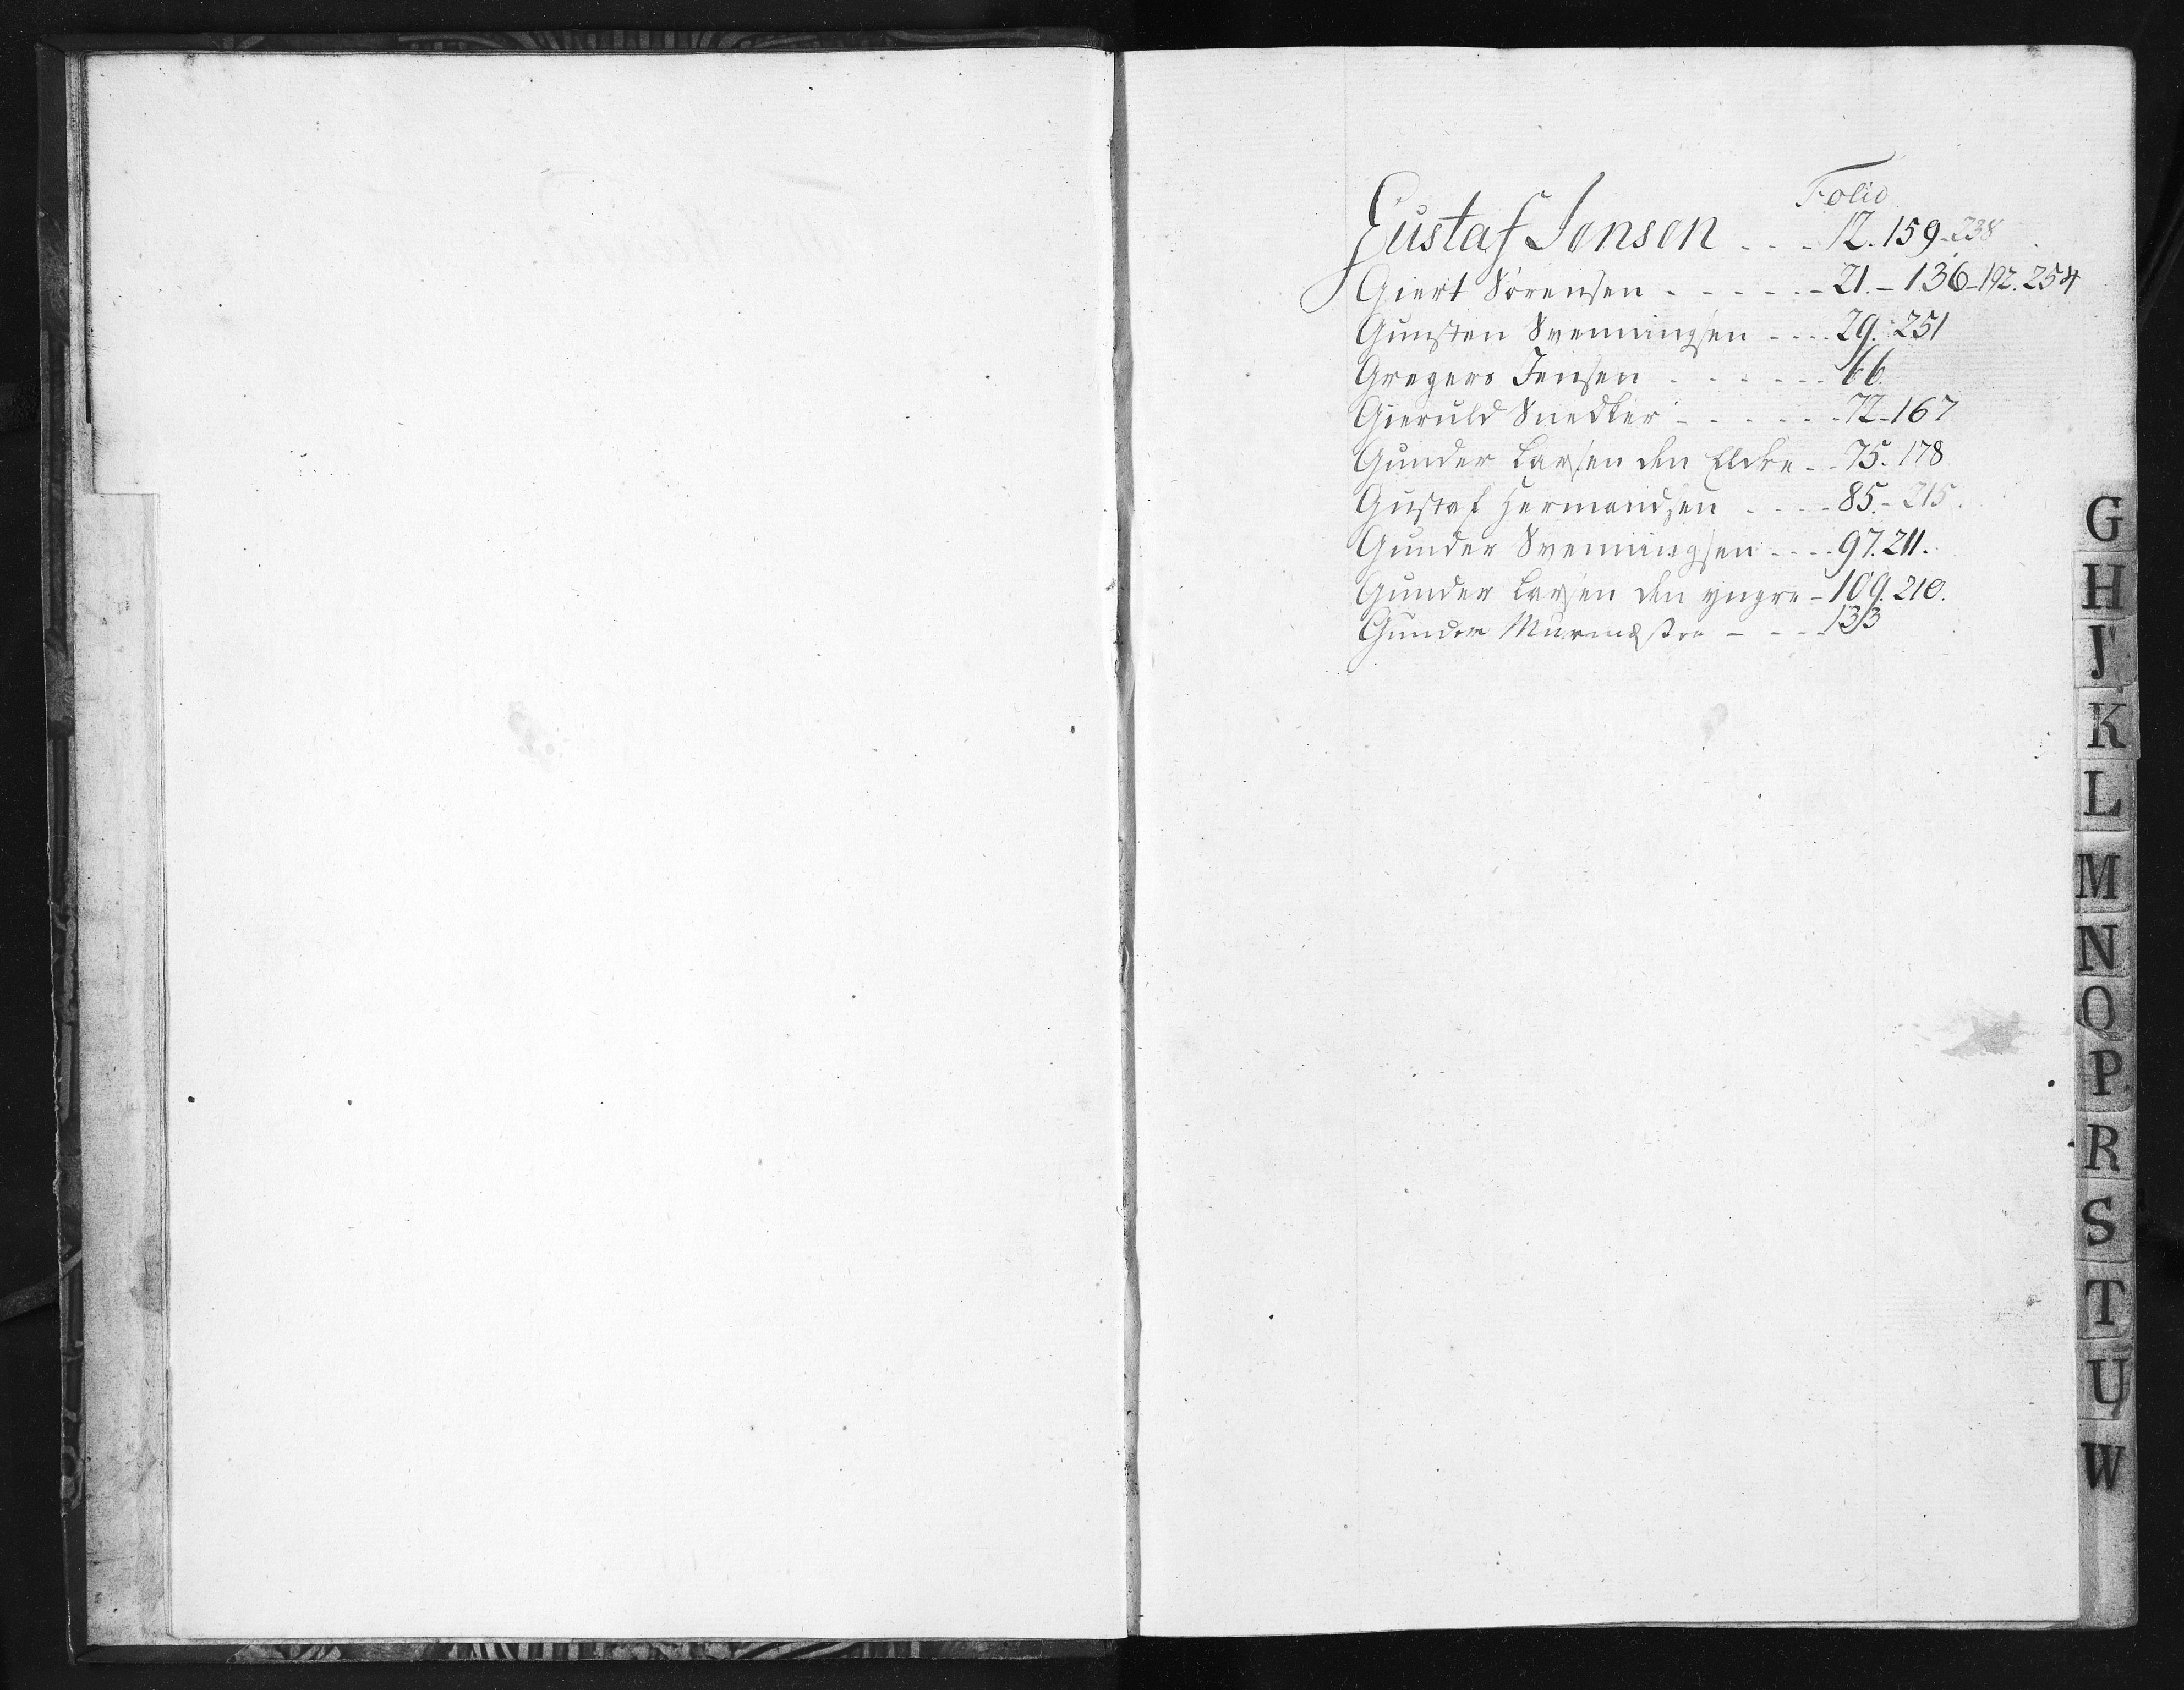 Folio
Gustaf Jensen - - - 12. 159-238
Giert Sörensen - - - - - - 21. - 136-192. 254
Gunsten Svenningsen - - - - 29. 251
Gregers Jensen - - - - - - 66.
Gieruld Snedker - - - - - - 72-167
Gunder Larsen den Eldre - - 75. 178
Gustaf Hermandsen - - - - 85. - 215.
Gunder Svenningsen - - - - 97. 211.
Gunder Larsen den yngre - 109. 210.
Gunder Murmester - - - - 133
G
H
J
K
L
M
N
O
P
R
S
T
U
W